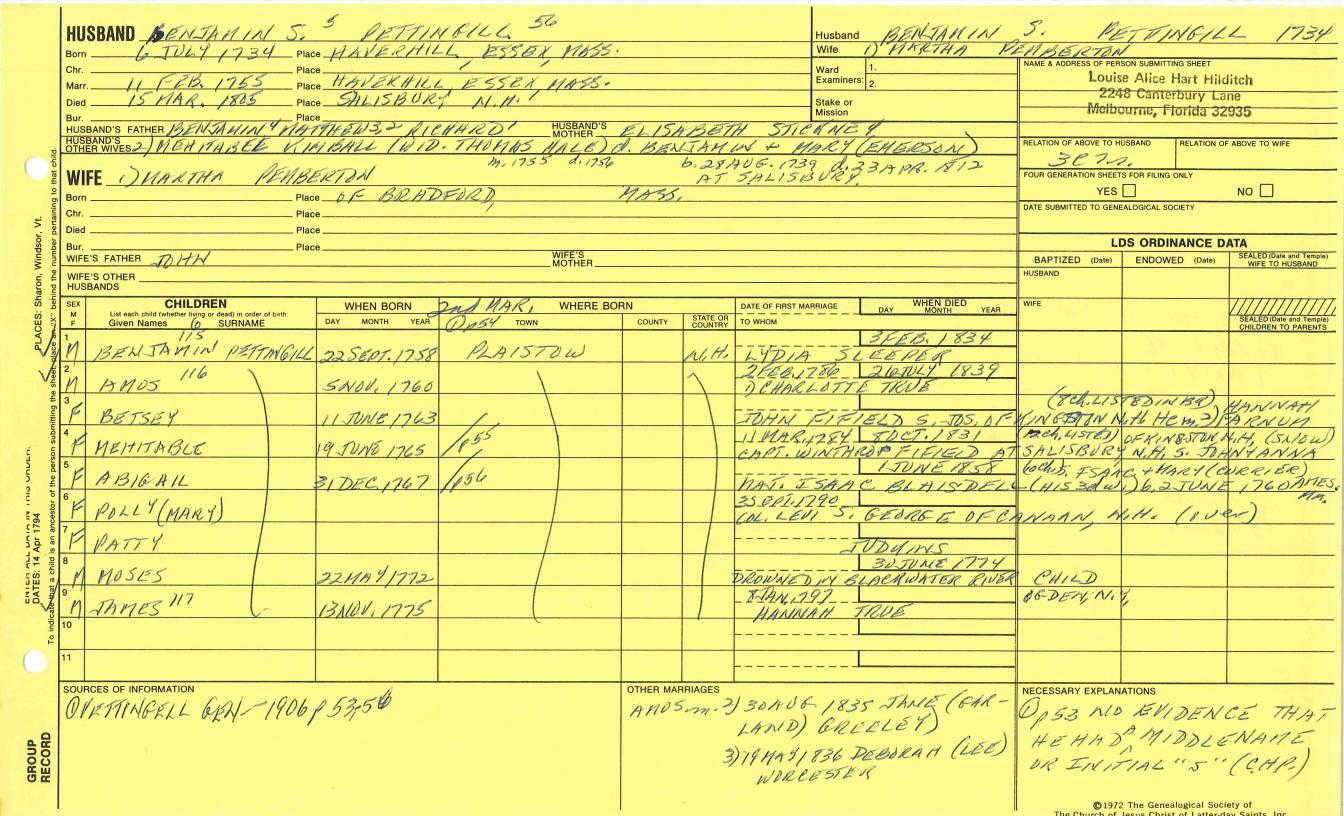 HUSBAND BENJAMIN S. 5 PETTINGILL 56
Born 6 JULY 1734 Place HAVERHILL, ESSEX, MASS.
Chr. Place
Marr. 11 FEB. 1755 Place HAVERHILL ESSEX, MASS.
Died 15 MAR. 1805 Place SALISBURY N.H.
Bur. Place
HUSBAND'S FATHER BENJAMIN 4 MATTHEW 3,2 RICHARD 1 HUSBAND'S MOTHER ELISABETH STICKNEY
HUSBAND'S OTHER WIVES 2) MEHITABLE KIMBALL (WID. THOMAS HALE) d. BENJAMIN + MARY (EMERSON)
m. 1755 d. 1756 b. 28 AUG. 1739 d. 23 APR. 1812
AT SALISBURY
WIFE 1) MARTHA PEMBERTON
Born Place OF BRADFORD, MASS.
Chr. Place
Died Place
Bur. Place
WIFE'S FATHER JOHN WIFE'S MOTHER
WIFE'S OTHER HUSBANDS
Husband BENJAMIN S. PETTINGILL 1734
Wife 1) MARTHA PEMBERTON
Ward Examiners: 1.
2.
Stake or Mission
NAME & ADDRESS OF PERSON SUBMITTING SHEET
Louise Alice Hart Hilditch
2248 Canterbury Lane
Melbourne, Florida 32935
RELATION OF ABOVE TO HUSBAND RELATION OF ABOVE TO WIFE
FOUR GENERATION SHEETS FOR FILING ONLY
YES NO
DATE SUBMITTED TO GENEALOGICAL SOCIETY
LDS ORDINANCE DATA
BAPTIZED (Date) ENDOWED (Date) SEALED (Date and Temple) WIFE TO HUSBAND
HUSBAND
WIFE
SEALED (Date and Temple) CHILDREN TO PARENTS
SEX M F
CHILDREN
List each child (whether living or dead) in order of birth
Given Names SURNAME
WHEN BORN 2nd MAR. WHERE BORN
DAY MONTH YEAR ① p54 TOWN COUNTY STATE OR COUNTRY
DATE OF FIRST MARRIAGE
TO WHOM
WHEN DIED
DAY MONTH YEAR
1 M BENJAMIN 115 PETTINGILL 22 SEPT. 1758 PLAISTOW N.H. 3 FEB. 1834
LYDIA SLEEPER
2 M AMOS 116 5 NOV. 1760 2 FEB. 1786 26 JULY 1839
1) CHARLOTTE TRUE
3 F BETSEY 11 JUNE 1763 (8 ch. LISTED IN BK) HANNAH
JOHN FIFIELD S. JOS. OF KINGSTON N.H. He m. 2) FARNUM
4 F MEHITABLE 19 JUNE 1765 p55 11 MAR. 1784 8 OCT. 1831 OF KINGSTON N.H. (SNOW)
CAPT. WINTHROP FIFIELD AT SALISBURY N.H. S. JOHN + ANNA
5 F ABIGAIL 31 DEC. 1767 p56 1 JUNE 1858 S. ISAAC + MARY (CURRIER)
NAT. ISAAC BLAISDELL (HIS 3d w.) b. 2 JUNE 1760 AMES. MA.
6 F POLLY (MARY) 3 SEPT. 1790
COL. LEVI S. GEORGE OF CANAAN, N.H. (over)
7 F PATTY
JUDKINS
8 M MOSES 22 MAY 1772 30 JUNE 1774
DROWNED IN BLACKWATER RIVER CHILD
9 M JAMES 117 13 NOV. 1775 8 JAN. 1797 OGDEN, N.Y.
HANNAH TRUE
10
11
SOURCES OF INFORMATION
① PETTINGELL GEN - 1906 p 53, 54
OTHER MARRIAGES
AMOS m. 2) 30 AUG 1835 JANE (GAR-
LAND) GREELEY)
3) 19 MAY 1836 DEBORAH (LEE)
WORCESTER
NECESSARY EXPLANATIONS
① p53 NO EVIDENCE THAT
HE HAD A MIDDLE NAME
OR INITIAL "S" (C.H.P.)
©1972 The Genealogical Society of
The Church of Jesus Christ of Latter-day Saints, Inc.
PLACES: Sharon, Windsor, Vt.
ENTER ALL DATA IN THIS ORDER:
DATES: 14 Apr 1794
To indicate that a child is an ancestor of the person submitting the sheet, place an "X" behind the number pertaining to that child.
GROUP RECORD